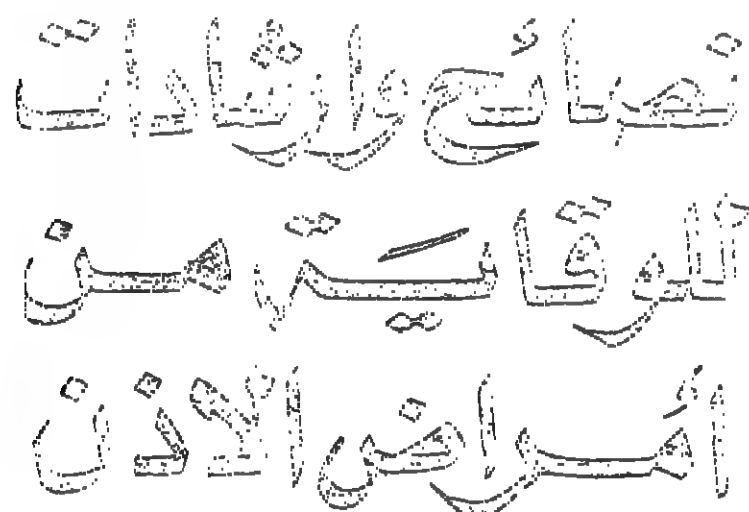 نصائح وارشادات
للوقاية من
أمراض الاذن